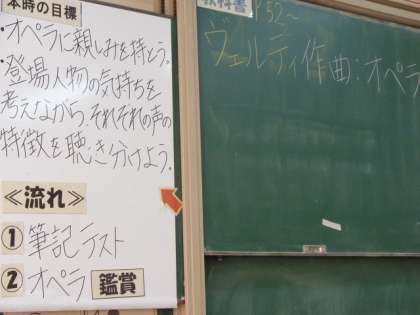 本時の目標
・オペラに親しみを持とう。
・登場人物の気持ちを
考えながら、それぞれの声の
特徴を聴き分けよう。
≪流れ≫
① 筆記テスト
② オペラ 鑑賞
教科書
P.52〜
ヴェルディ作曲:オペラ